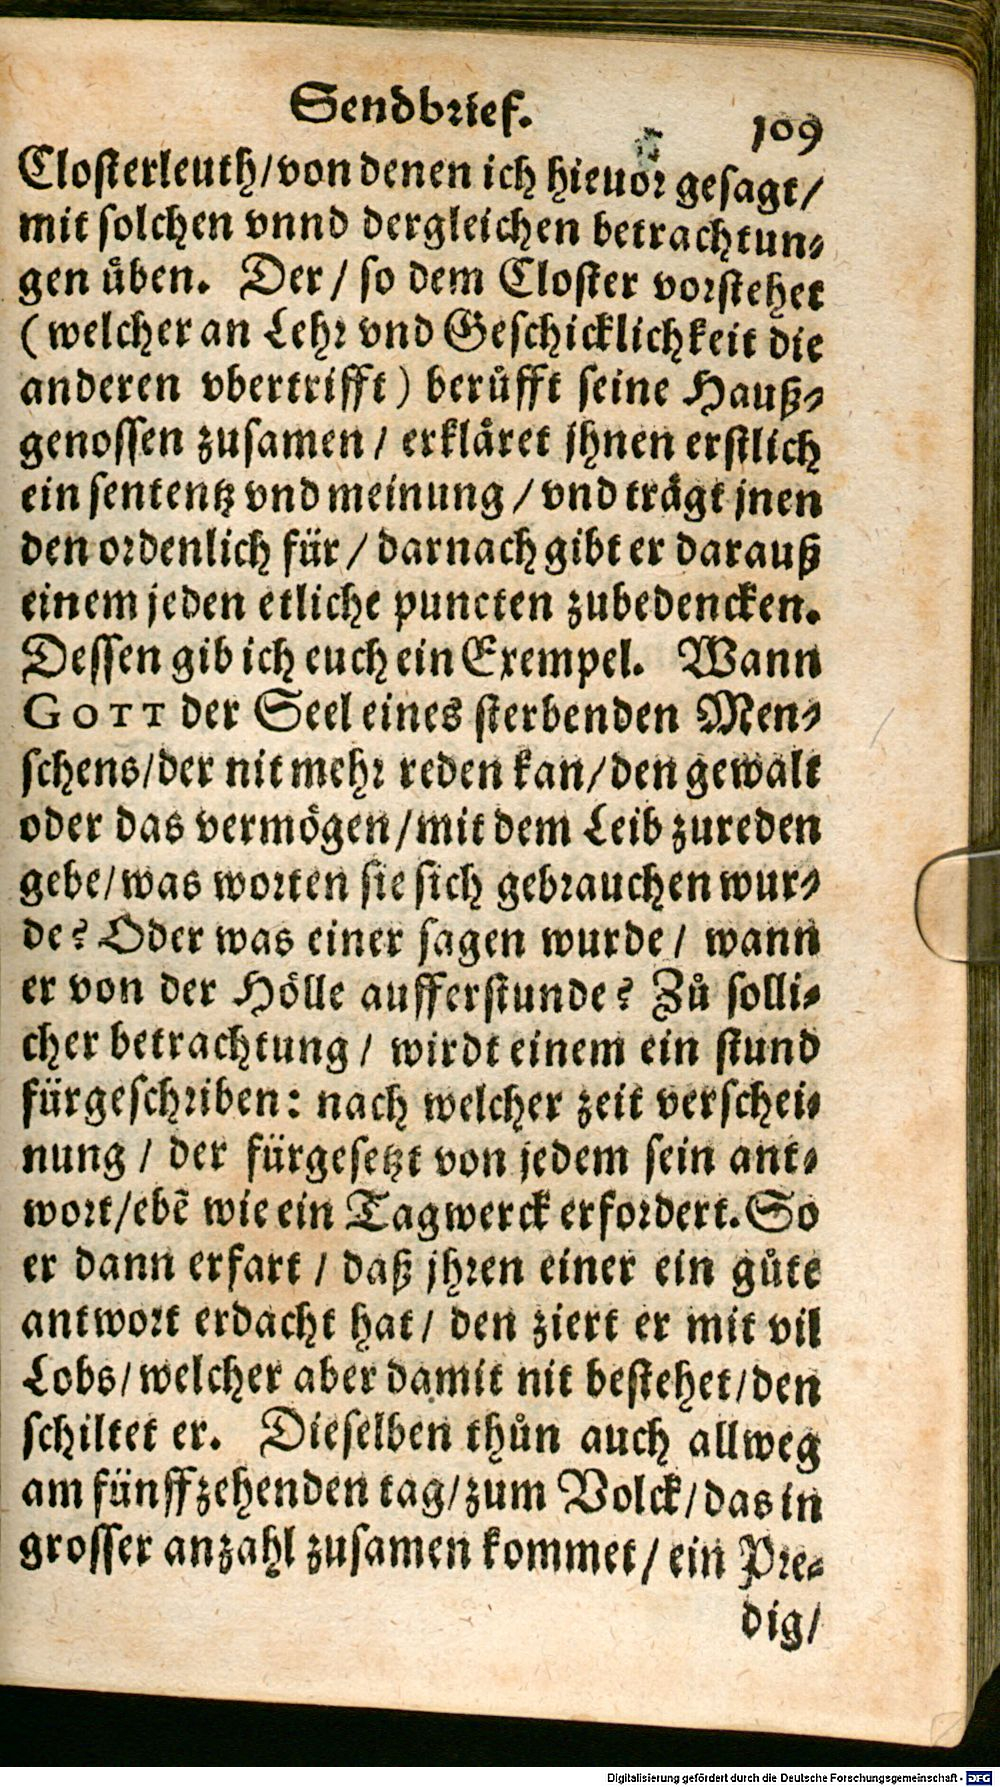 Sendbrief. 109
Closterleuth/von denen ich hieuor gesagt/
mit solchen vnnd dergleichen betrachtun⸗
gen uͤben. Der/ so dem Closter vorstehet
(welcher an Lehr vnd Geschicklichkeit die
anderen vbertrifft) beruͤfft seine Hauß⸗
genossen zusamen/ erklaͤret jhnen erstlich
ein sententz vnd meinung/ vnd traͤgt jnen
den ordenlich für/ darnach gibt er darauß
einem jeden etliche puncten zubedencken.
Dessen gib ich euch ein Exempel. Wann
GOTT der Seel eines sterbenden Men⸗
schens/der nit mehr reden kan/den gewalt
oder das vermögen/mit dem Leib zureden
gebe/was worten sie sich gebrauchen wur⸗
de? Oder was einer sagen wurde/ wann
er von der Hölle aufferstunde? Zů solli⸗
cher betrachtung/ wirdt einem ein stund
fürgeschriben: nach welcher zeit verschei⸗
nung/ der fürgesetzt von jedem sein ant⸗
wort/ebẽ wie ein Tagwerck erfordert. So
er dann erfart/ daß jhren einer ein gůte
antwort erdacht hat/ den ziert er mit vil
Lobs/welcher aber damit nit bestehet/den
schiltet er. Dieselben thůn auch allweg
am fünffzehenden tag/zum Volck/das in
grosser anzahl zusamen kommet/ein Pre⸗
dig/
Digitalisierung gefördert durch die Deutsche Forschungsgemeinschaft - DFG